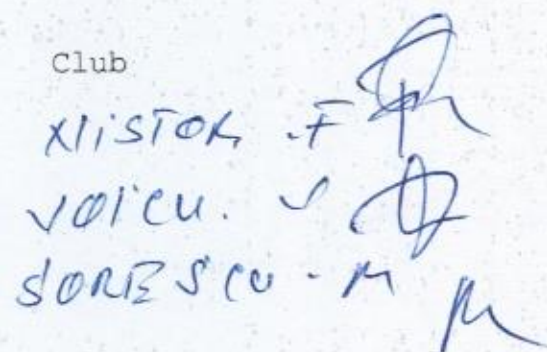 Club
NISTOR .F
VOICU. V
SORESCU - M